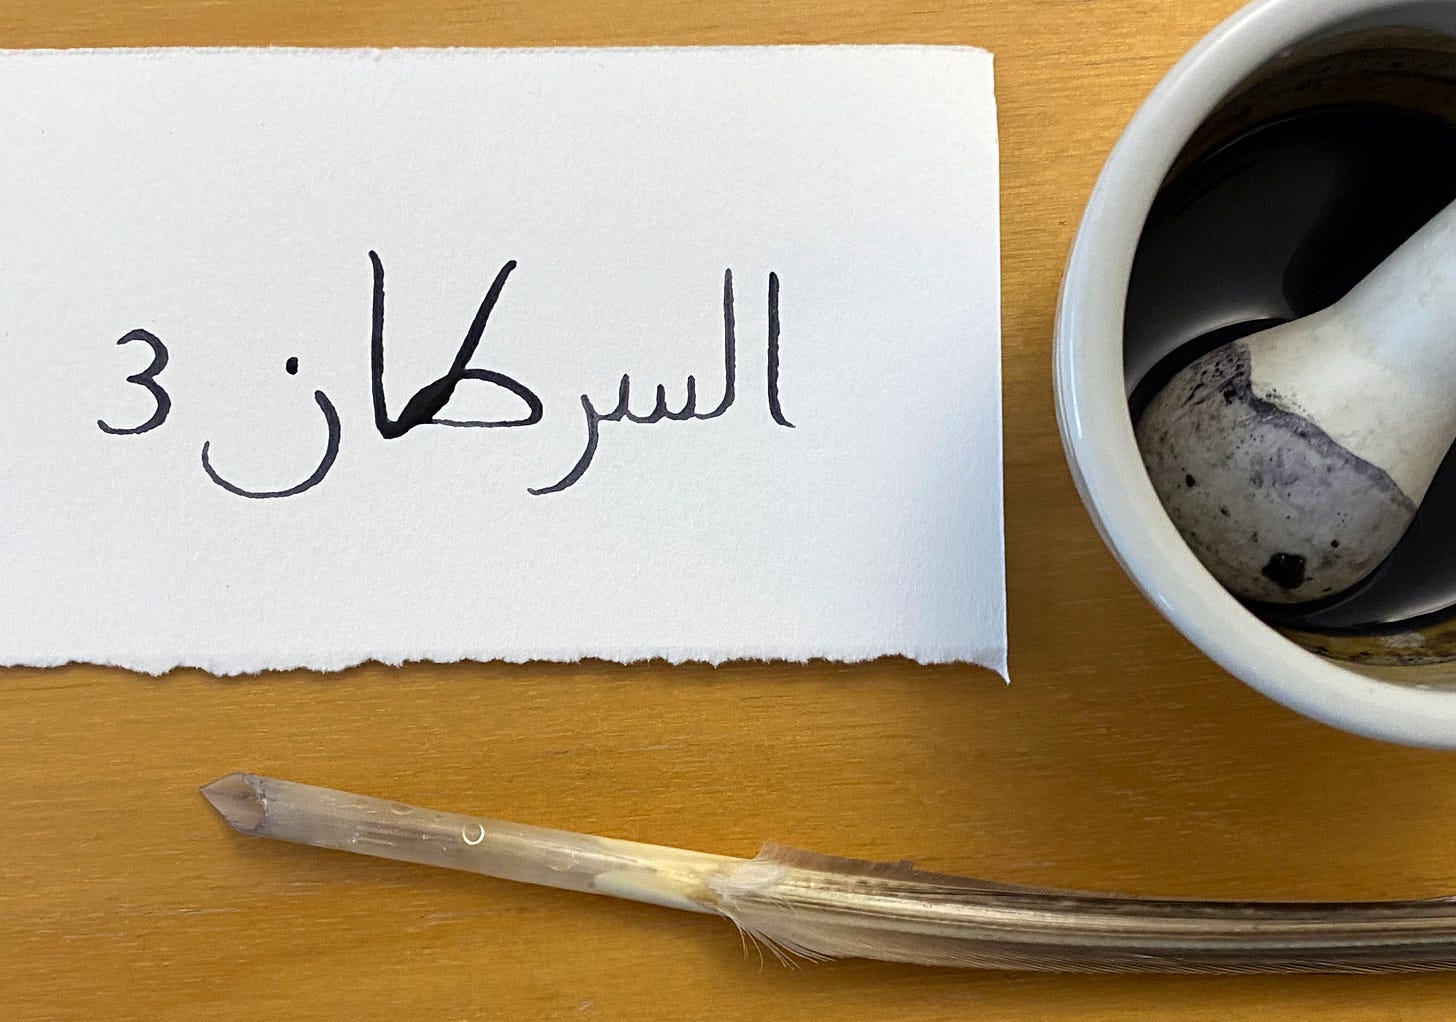 السرطان 3